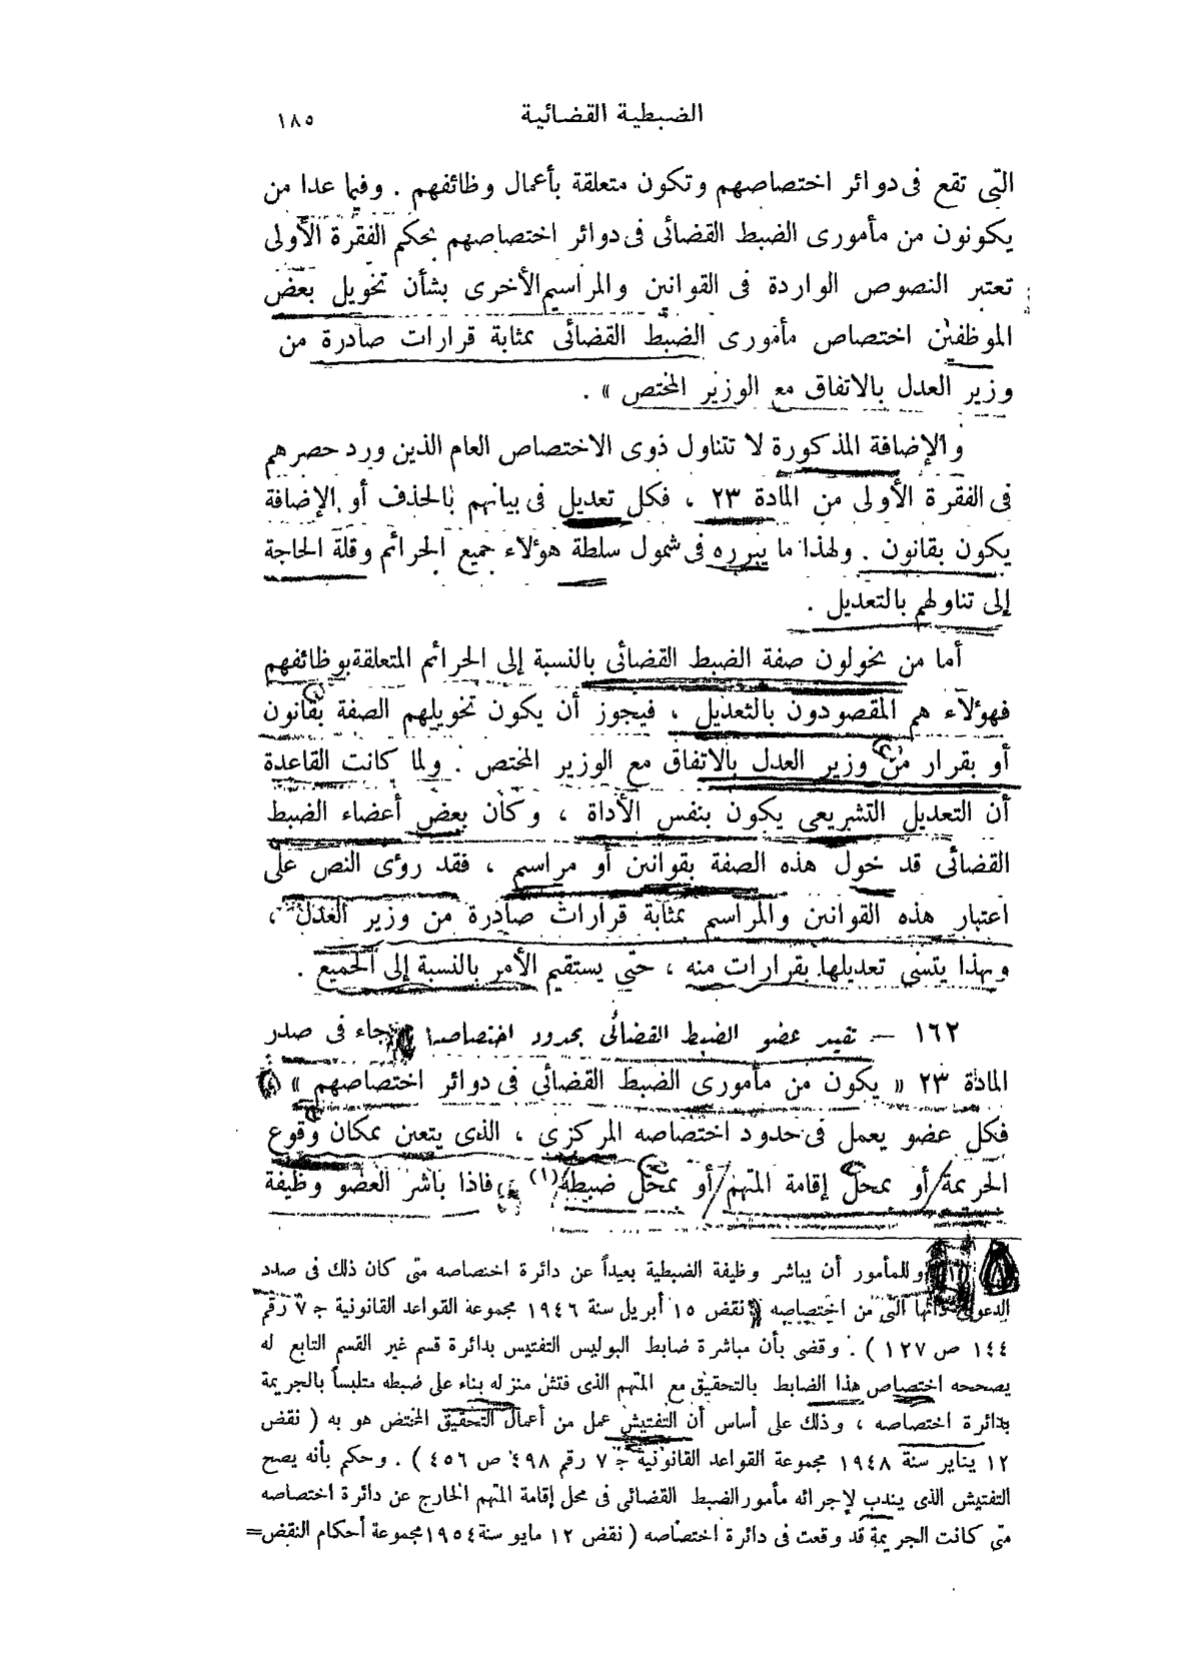 الضبطية القضائية
١٨٥
التى تقع فى دوائر اختصاصهم وتكون متعلقة بأعمال وظائفهم . وفيما عدا من
يكونون من مأمورى الضبط القضائى فى دوائر اختصاصهم بحكم الفقرة الأولى
تعتبر النصوص الواردة فى القوانين والمراسيم الأخرى بشأن تخويل بعض
الموظفين اختصاص مأمورى الضبط القضائى بمثابة قرارات صادرة من
وزير العدل بالاتفاق مع الوزير المختص » .
والإضافة المذكورة لا تتناول ذوى الاختصاص العام الذين ورد حصرهم
فى الفقرة الأولى من المادة ٢٣ ، فكل تعديل فى بيانهم بالحذف أو الإضافة
يكون بقانون . ولهذا ما يبرره فى شمول سلطة هؤلاء جميع الجرائم وقلة الحاجة
إلى تناولهم بالتعديل .
أما من يخولون صفة الضبط القضائى بالنسبة إلى الجرائم المتعلقة بوظائفهم
فهؤلاء هم المقصودون بالتعديل ، فيجوز أن يكون تخويلهم الصفة بقانون
أو بقرار من وزير العدل بالاتفاق مع الوزير المختص . ولما كانت القاعدة
أن التعديل التشريعى يكون بنفس الأداة ، وكان بعض أعضاء الضبط
القضائى قد خول هذه الصفة بقوانين أو مراسيم ، فقد رؤى النص على
اعتبار هذه القوانين والمراسيم بمثابة قرارات صادرة من وزير العدل ،
وبهذا يتسنى تعديلها بقرارات منه ، حتى يستقيم الأمر بالنسبة إلى الجميع .
١٦٢ — تقييد عضو الضبط القضائى بحدود اختصاصه جاء فى صدر
المادة ٢٣ « يكون من مأمورى الضبط القضائى فى دوائر اختصاصهم »
فكل عضو يعمل فى حدود اختصاصه المركزى ، الذى يتعين بمكان وقوع
الجريمة أو بمحل إقامة المتهم أو بمحل ضبطه (١) فاذا باشر العضو وظيفة
وللمأمور أن يباشر وظيفة الضبطية بعيداً عن دائرة اختصاصه متى كان ذلك فى صدد
الدعوى ذاتها التى من اختصاصه ( نقض ١٥ أبريل سنة ١٩٤٦ مجموعة القواعد القانونية ج ٧ رقم
١٤٤ ص ١٢٧ ) . وقضى بأن مباشرة ضابط البوليس التفتيس بدائرة قسم غير القسم التابع له
يصححه اختصاص هذا الضابط بالتحقيق مع المتهم الذى فتش منزله بناء على ضبطه متلبساً بالجريمة
بدائرة اختصاصه ، وذلك على أساس أن التفتيش عمل من أعمال التحقيق المختص هو به ( نقض
١٢ يناير سنة ١٩٤٨ مجموعة القواعد القانونية ج ٧ رقم ٤٩٨ ص ٤٥٦ ) . وحكم بأنه يصح
التفتيش الذى يندب لإجرائه مأمور الضبط القضائى فى محل إقامة المتهم الخارج عن دائرة اختصاصه
متى كانت الجريمة قد وقعت فى دائرة اختصاصه ( نقض ١٢ مايو سنة ١٩٥٤ مجموعة أحكام النقض=